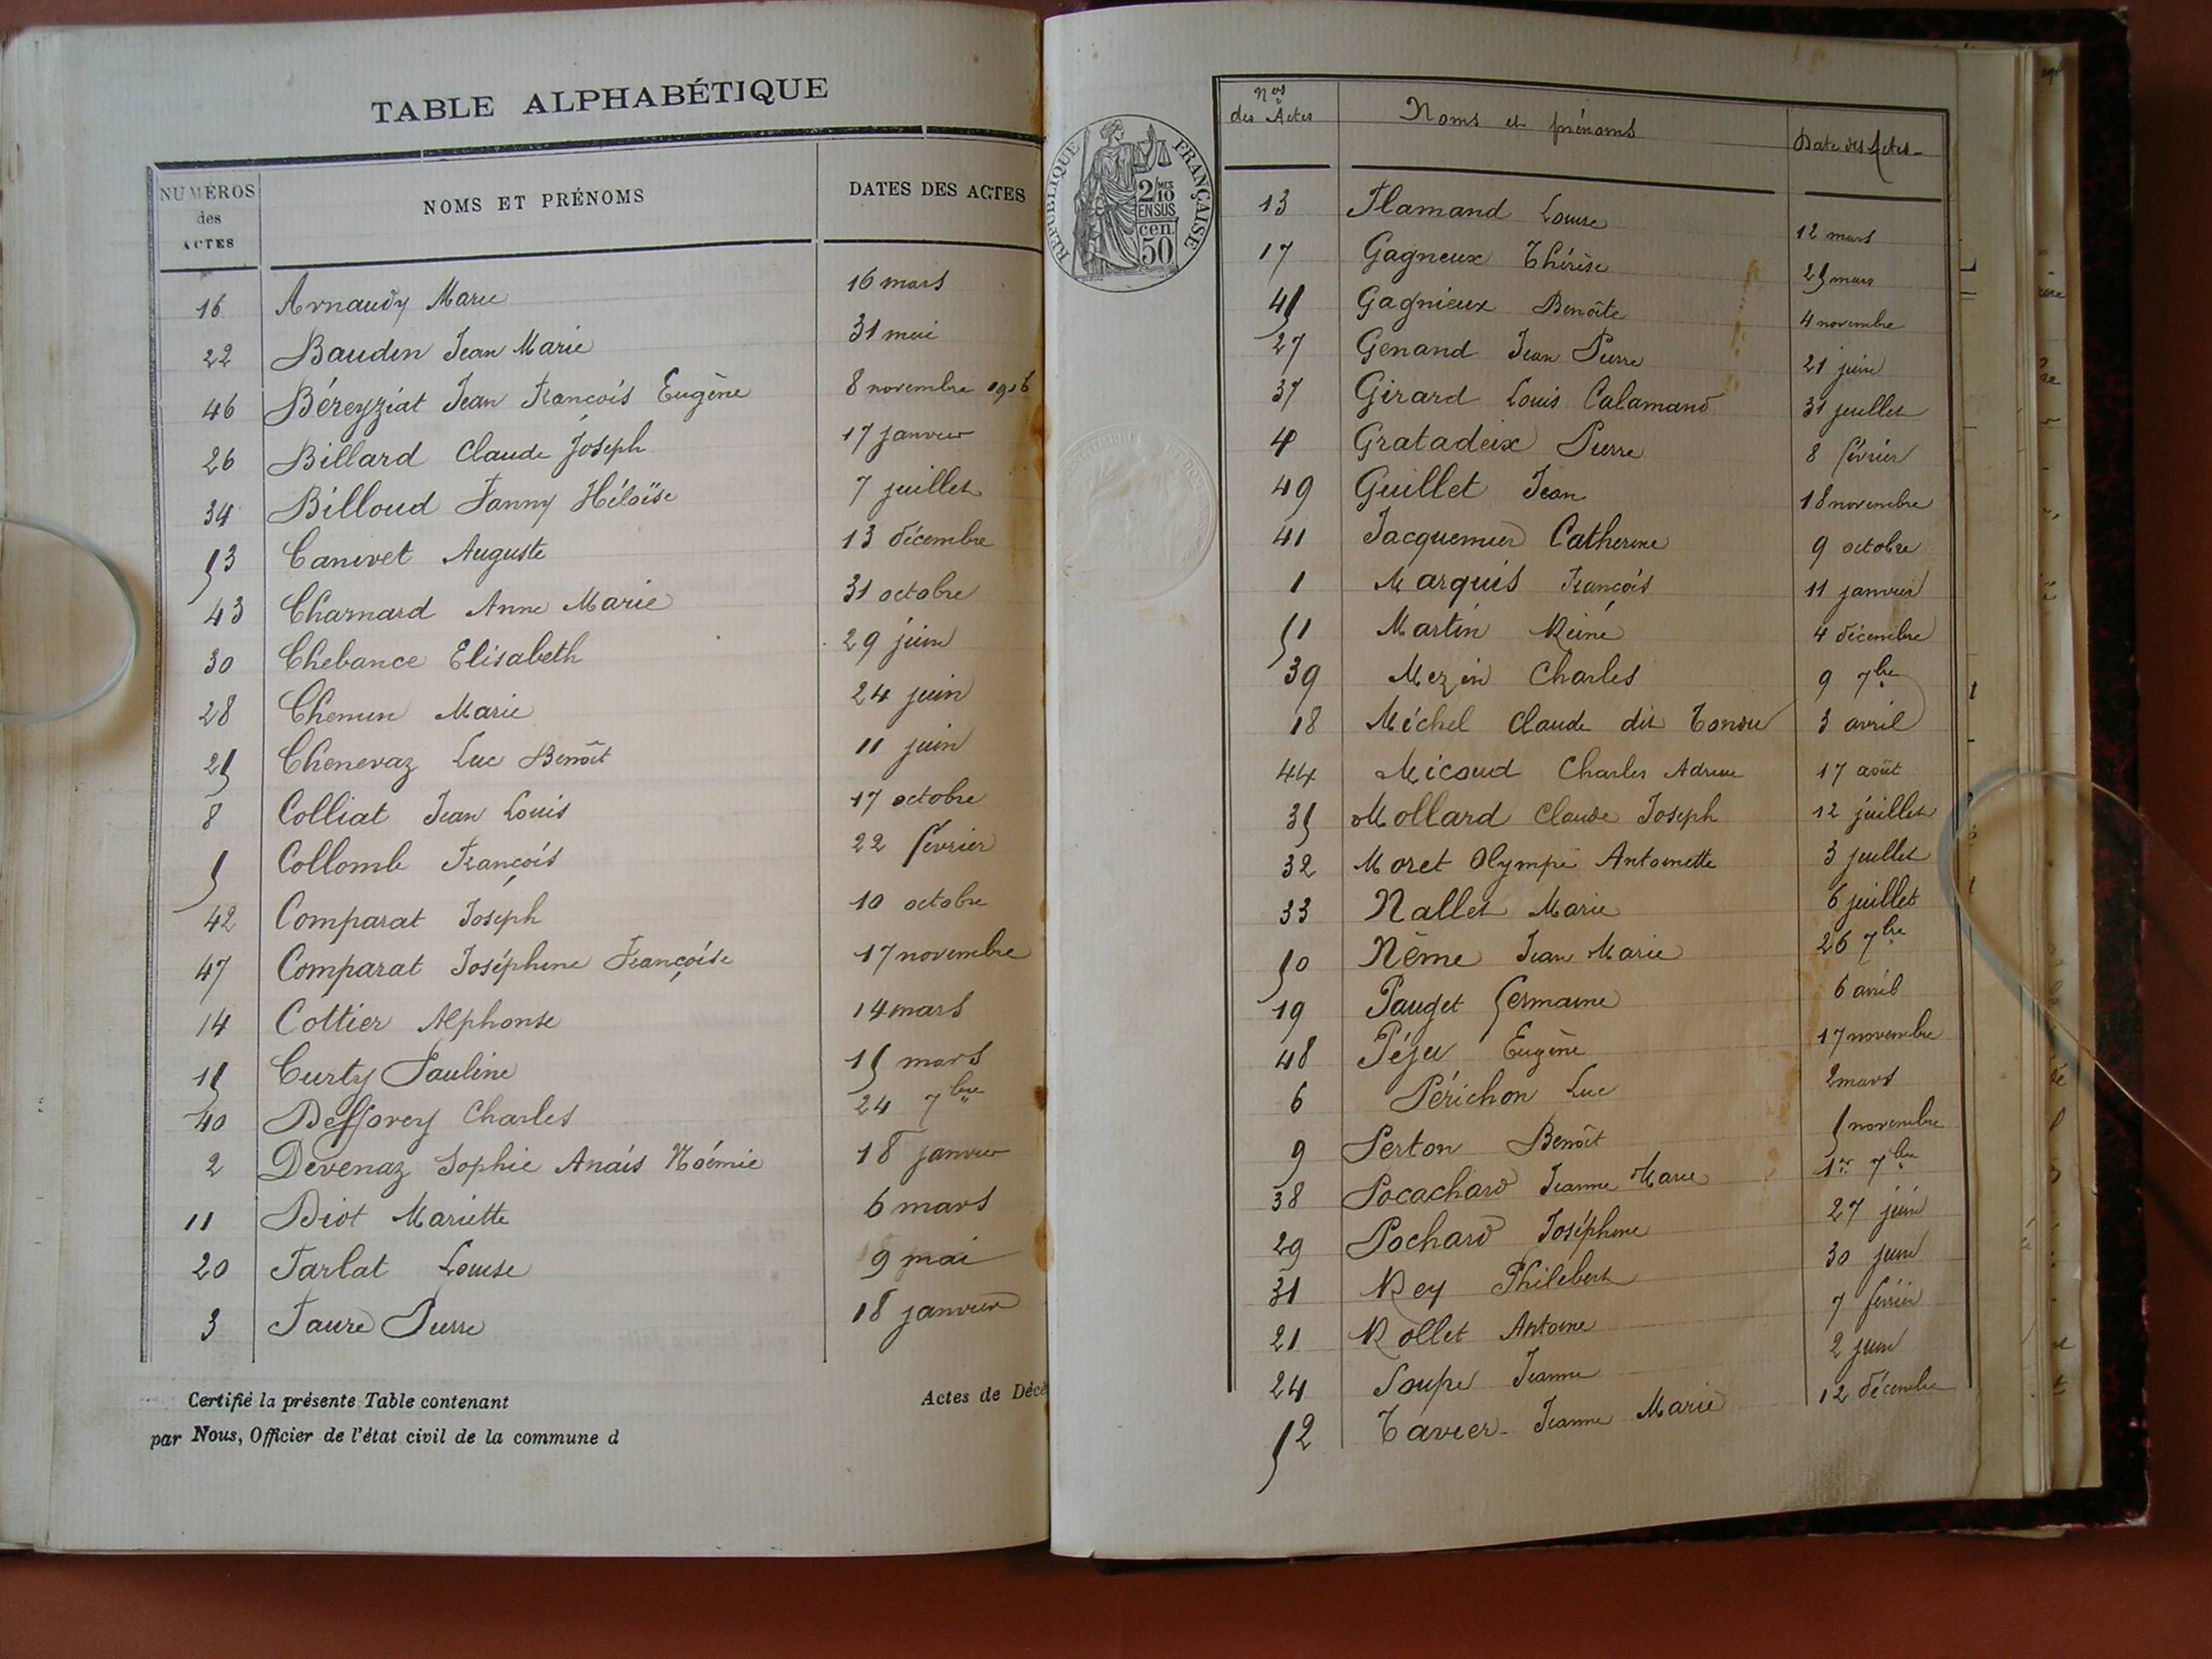 TABLE ALPHABÉTIQUE
NUMÉROS des ACTES NOMS ET PRÉNOMS DATES DES ACTES
16 Arnaudy Marie 16 mars
22 Baudin Jean Marie 31 mai
46 Béreyziat Jean François Eugène 8 novembre 1916
26 Billard Claude Joseph 17 janvier
34 Billoud Fanny Héloïse 7 juillet
53 Canivet Auguste 13 décembre
43 Charnard Anne Marie 31 octobre
30 Chebance Elisabeth 29 juin
28 Chemin Marie 24 juin
25 Chenevaz Luc Benoît 11 juin
8 Colliat Jean Louis 17 octobre
5 Collomb François 22 février
42 Comparat Joseph 10 octobre
47 Comparat Joséphine Françoise 17 novembre
14 Cottier Alphonse 14 mars
15 Curty Pauline 15 mars
40 Defforey Charles 24 7bre
2 Devenaz Sophie Anaïs Noémie 18 janvier
11 Diot Mariette 6 mars
20 Farlat Louise 9 mai
3 Faure Pierre 18 janvier
Certifié la présente Table contenant Actes de Décè
par Nous, Officier de l'état civil de la commune d
RÉPUBLIQUE FRANÇAISE
2/10 MES
EN SUS
50 cen.
Nos des Actes Noms et prénoms Date des Actes
13 Flamand Louise 12 mars
17 Gagneux Thérèse 25 mars
45 Gagnieux Benoîte 4 novembre
27 Genand Jean Pierre 21 juin
37 Girard Louis Calamand 31 juillet
4 Gratadeix Pierre 8 février
49 Guillet Jean 18 novembre
41 Jacquemier Catherine 9 octobre
1 Marquis François 11 janvier
51 Martin Reine 4 décembre
39 Mezin Charles 9 7bre
18 Michel Claude dit Tondu 3 avril
44 Micoud Charles 17 août
35 Mollard Claude Joseph 12 juillet
32 Moret Olympe Antoinette 3 juillet
33 Nallet Marie 6 juillet
50 Nême Jean Marie 26 7bre
19 Pauget Germaine 6 avril
48 Péju Eugène 17 novembre
6 Périchon Luc 2 mars
9 Perton Benoît 5 novembre
38 Pocachard Jeanne Marie 1er 7bre
29 Pochard Joséphine 27 juin
31 Rey Philibert 30 juin
21 Rollet Antoine 7 février
24 Soupe Jeanne 2 juin
52 Tavier Jeanne Marie 12 décembre